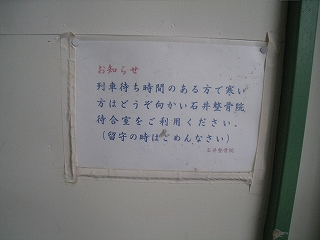 お知らせ
列車待ち時間のある方で寒い
方はどうぞ向かい石井整骨院
待合室をご利用ください。
(留守の時はごめんなさい)
石井整骨院